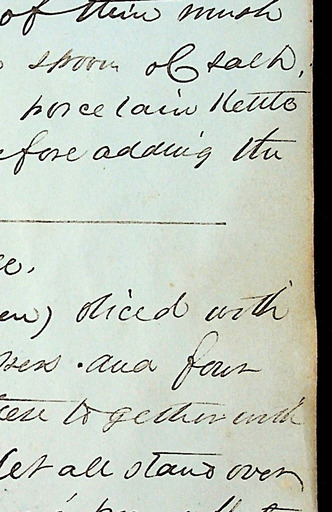 of thin mush
spoon of salt,
porcelain Kettle
before adding the
sliced with
and four
together with
let all stand over